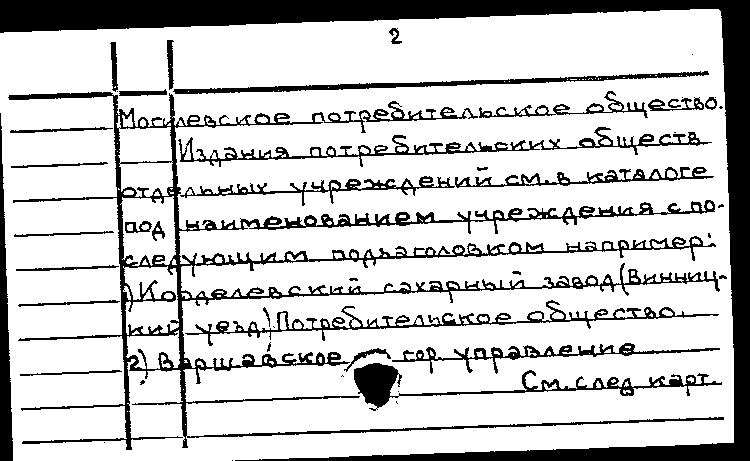 2
Могилевское потребительское общество.
Издания потребительских обществ
отдельных учреждений см. в каталоге
под наименованием учреждения с по-
следующим подзаголовком например:
1) Корделевский сахарный завод (Винниц-
кий уезд.) Потребительское общество.
2) Варшавское гор. управление
См. след карт.